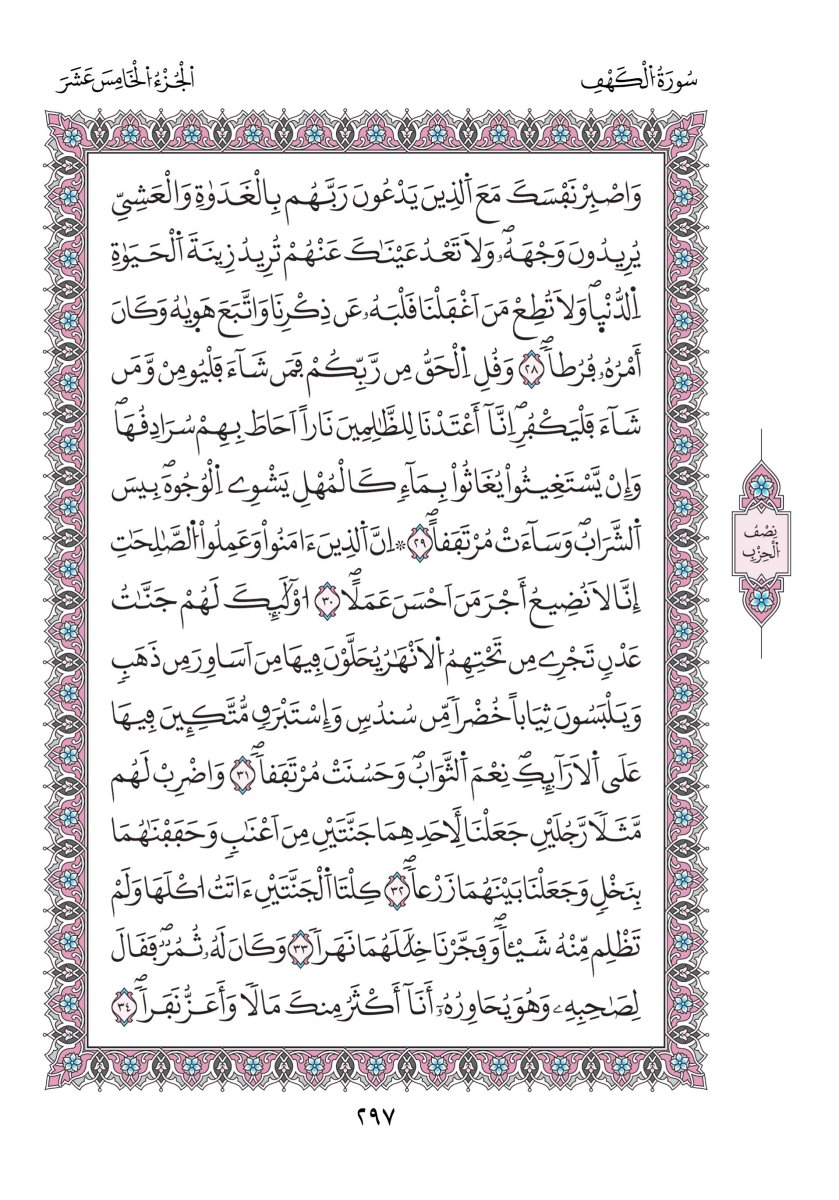 سُورَةُ اُ۬لْكَهْفِ
اَ۬لْجُزْءُ اُ۬لْخَامِسَ عَشَرَ
وَاصْبِرْ نَفْسَكَ مَعَ اَ۬لذِينَ يَدْعُونَ رَبَّهُم بِالْغَدَوٰةِ وَالْعَشِيِّ
يُرِيدُونَ وَجْهَهُۥۖ وَلَا تَعْدُ عَيْنَٰكَ عَنْهُمْ تُرِيدُ زِينَةَ اَ۬لْحَيَوٰةِ
اِ۬لدُّنْي۪اۖ وَلَا تُطِعْ مَنَ اَغْفَلْنَا قَلْبَهُۥ عَن ذِكْرِنَا وَاتَّبَعَ هَو۪يٰهُ وَكَانَ
أَمْرُهُۥ فُرُطاٗۖ ٢٨ وَقُلِ اِ۬لْحَقُّ مِن رَّبِّكُمْ فَمَن شَآءَ فَلْيُومِنْ وَّمَن
شَآءَ فَلْيَكْفُرِۖ اِنَّآ أَعْتَدْنَا لِلظَّٰلِمِينَ نَاراً اَحَاطَ بِهِمْ سُرَادِقُهَاۖ
وَإِنْ يَّسْتَغِيثُواْ يُغَاثُواْ بِمَآءٖ كَالْمُهْلِ يَشْوِے اِ۬لْوُجُوهَۖ بِيسَ
اَ۬لشَّرَابُۖ وَسَآءَتْ مُرْتَفَقاًۖ ٢٩ ۞ اِنَّ اَ۬لذِينَ ءَامَنُواْ وَعَمِلُواْ اُ۬لصَّٰلِحَٰتِ
إِنَّا لَا نُضِيعُ أَجْرَ مَنَ اَحْسَنَ عَمَلاًۖ ٣٠ ا۟وْلَٰٓئِكَ لَهُمْ جَنَّٰتُ
عَدْنٖ تَجْرِے مِن تَحْتِهِمُ اُ۬لَانْهَٰرُ يُحَلَّوْنَ فِيهَا مِنَ اَسَاوِرَ مِن ذَهَبٖ
وَيَلْبَسُونَ ثِيَاباً خُضْراٗ مِّن سُندُسٖ وَإِسْتَبْرَقٖ مُّتَّكِـِٕينَ فِيهَا
عَلَي اَ۬لَارَآئِكِۖ نِعْمَ اَ۬لثَّوَابُۖ وَحَسُنَتْ مُرْتَفَقاٗۖ ٣١ وَاضْرِبْ لَهُم
مَّثَلاٗ رَّجُلَيْنِ جَعَلْنَا لِأَحَدِهِمَا جَنَّتَيْنِ مِنَ اَعْنَٰبٖ وَحَفَفْنَٰهُمَا
بِنَخْلٖ وَجَعَلْنَا بَيْنَهُمَا زَرْعاٗۖ ٣٢ كِلْتَا اَ۬لْجَنَّتَيْنِ ءَاتَتُ ا۟كْلَهَا وَلَمْ
تَظْلِم مِّنْهُ شَيْـٔاٗۖ وَفَجَّرْنَا خِلَٰلَهُمَا نَهَراٗ ٣٣ وَكَانَ لَهُۥ ثُمُرٞۖ فَقَالَ
لِصَٰحِبِهِۦ وَهُوَ يُحَاوِرُهُۥٓ أَنَآ أَكْثَرُ مِنكَ مَالاٗ وَأَعَزُّ نَفَراٗۖ ٣٤
نِصْفُ
اُ۬لْحِزْبِ
٢٩٧